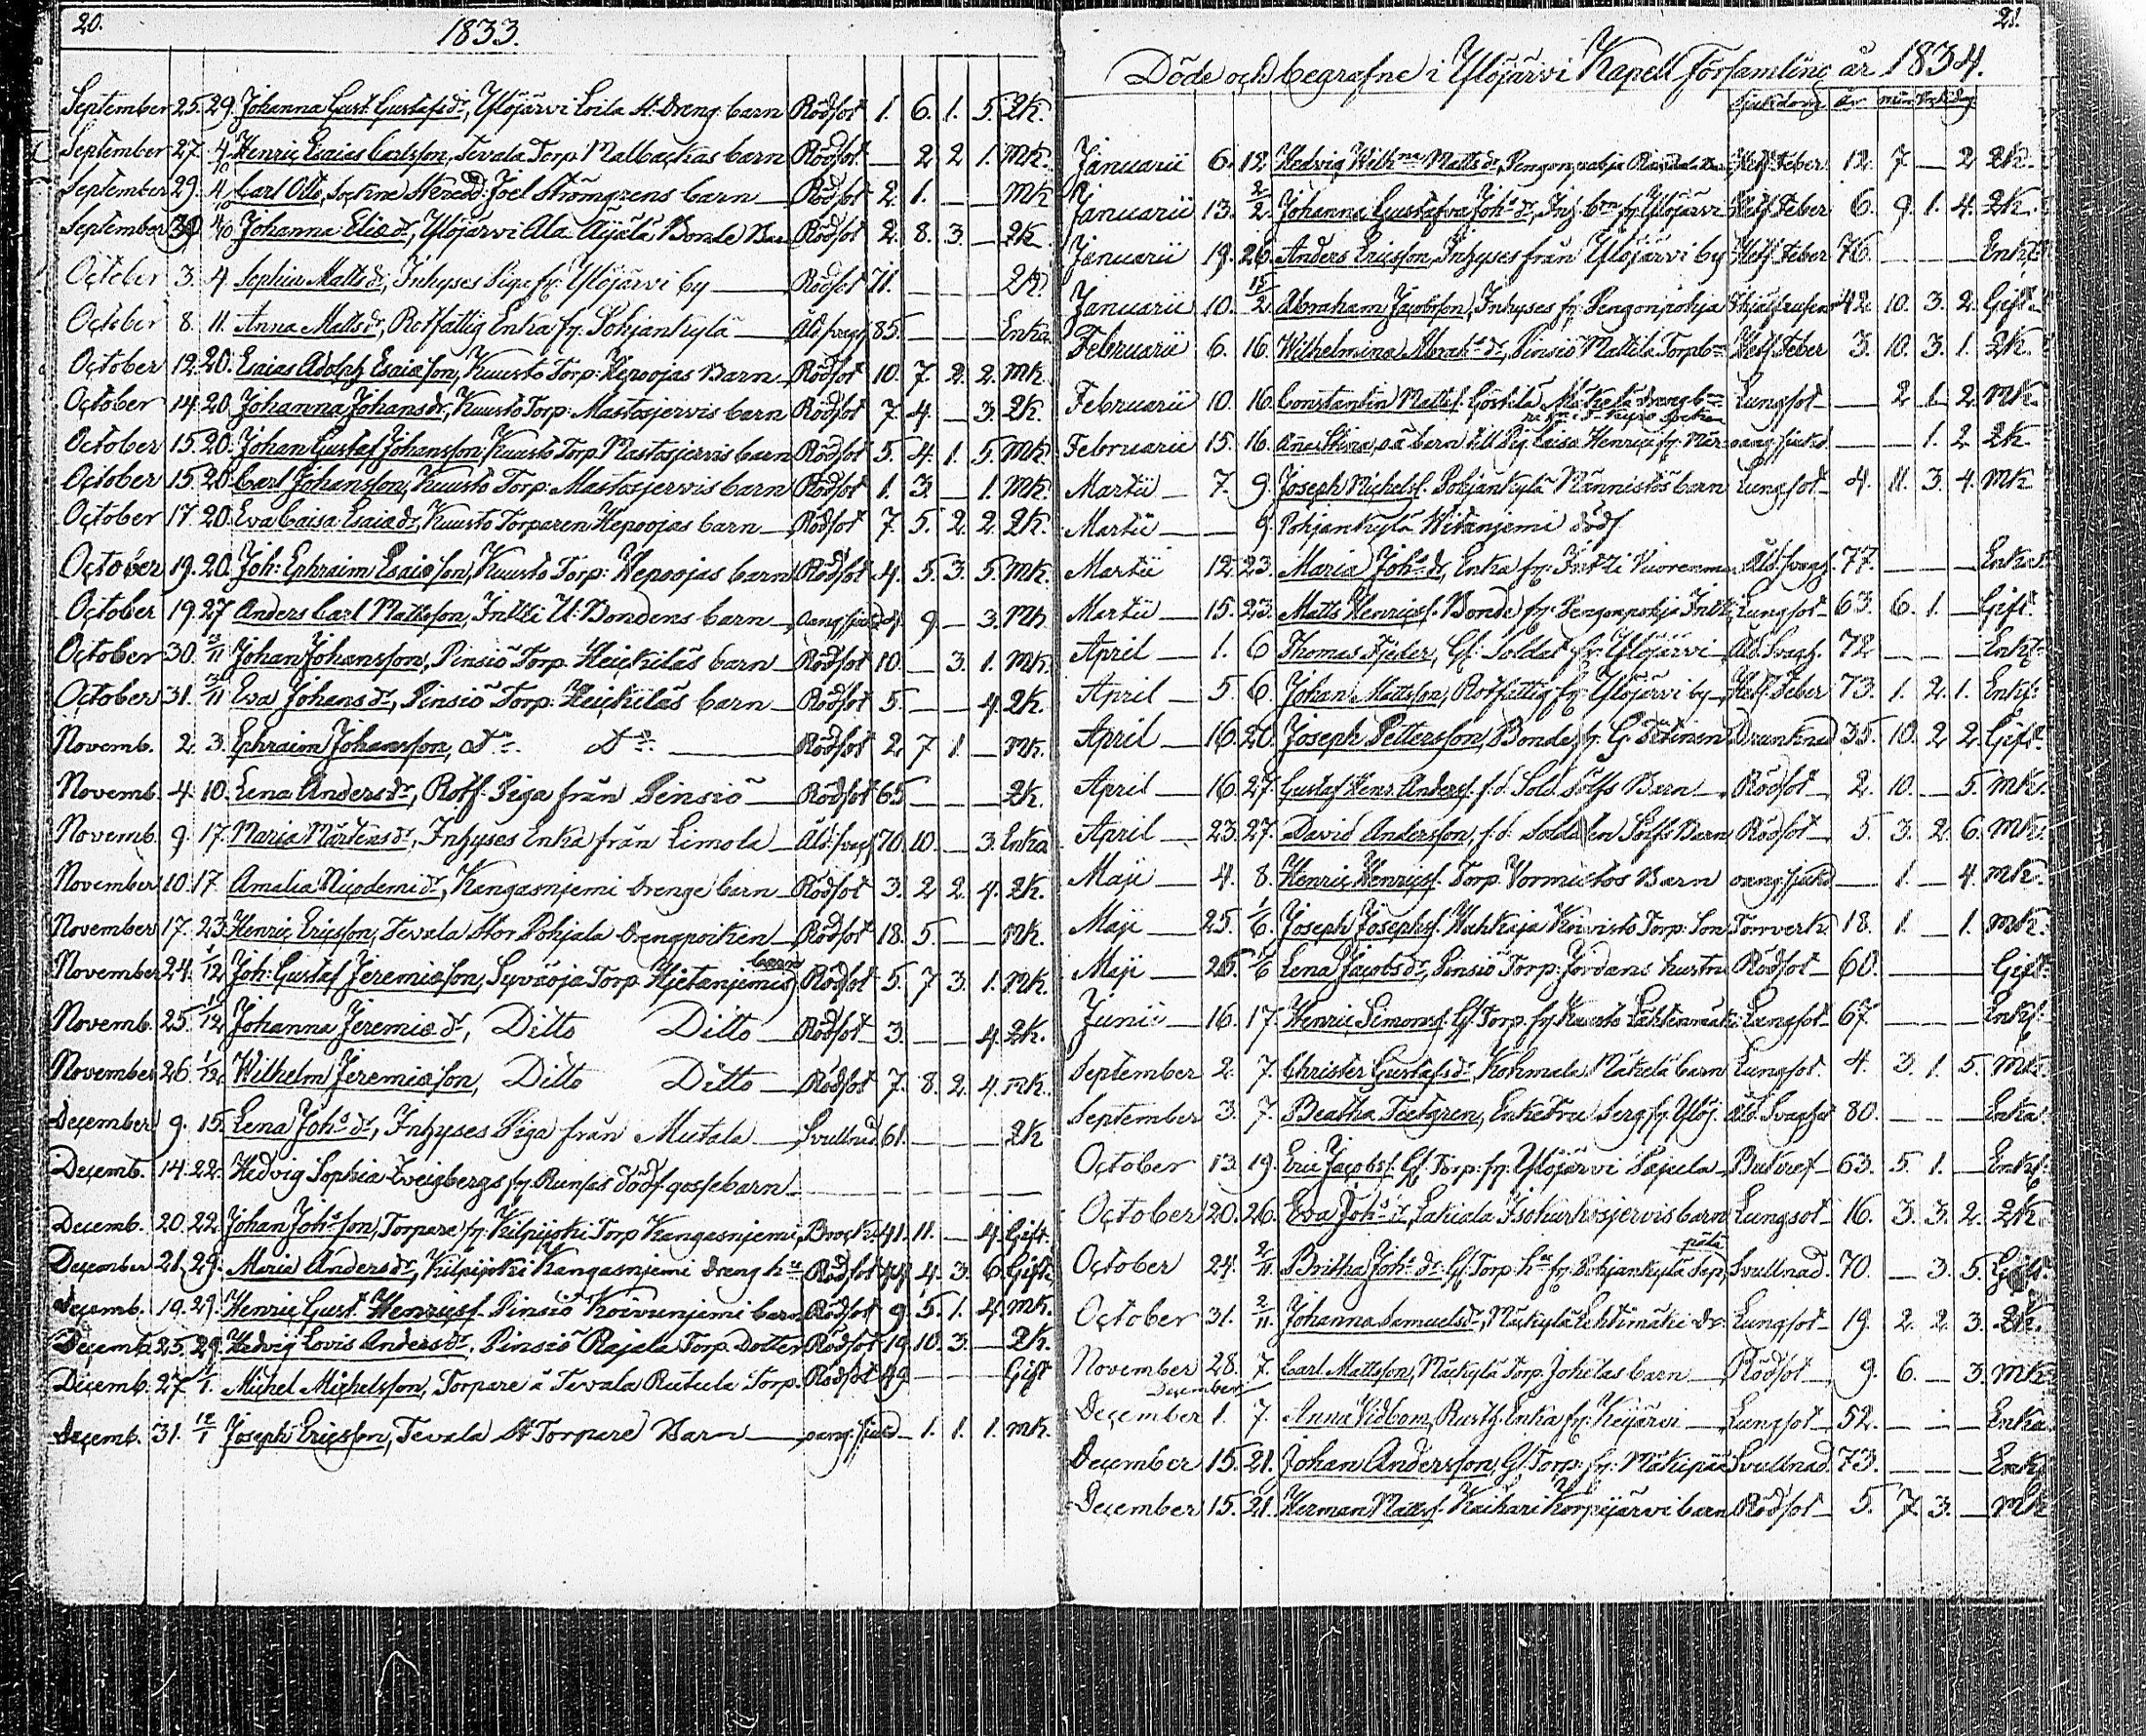 20.
1833.
September 25. 29. Johanna Gust. Gustafsdr, Ylöjärvi Loila St. Dreng barn Rödsot 1. 6. 1. 5. QK.
September 27. 4/10 Henric Esaias Carlsson, Tevala Torp. Malbackas barn Rödsot — 2 2 1. MK.
September 29. 4/10 Carl Otto, Joel Strömgrens barn Rödsot 2. 1. — — MK
September 30 4/10 Johanna Eliædr, Ylöjärvi Ala Äijälä Bonde Rödsot 2. 8. 3. — QK.
October 3. 4 Sophia Mattsdr, Inhyses Piga fr. Ylöjärvi by Rödsot 71. — — — QK.
October 8. 11. Anna Mattsdr, Rotfattig Enka fr. Pohjankylä Åld. svagh 85. — — — Enka
October 12. 20. Esaias Adolph Esaiæson, Kuusto Torp. Hepoojas Barn Rödsot 10. 7. 2. 2. MK.
October 14. 20. Johanna Johansdr, Kuusto Torp: Mastosjervis barn Rödsot 7. 4. — 3. QK.
October 15. 20. Johan Gustaf Johansson, Kuusto Torp Mastosjervis barn Rödsot 5. 4. 1. 5. MK.
October 15. 20. Carl Johansson, Kuusto Torp: Mastosjervis barn Rödsot 1. 3. — 1. MK.
October 17 20. Eva Caisa Esaiædr, Kuusto Torparen Hepoojas barn Rödsot 7. 5. 2. 2. QK.
October 19. 20. Joh: Ephraim Esaiæson, Kuusto Torp: Hepoojas barn Rödsot 4. 5. 3. 5. MK.
October 19. 27 Anders Carl Mattsson, Intti U. Bondens barn oang. sjukd 4. 9. — 3. MK
October 30. 3/11 Johan Johansson, Pinsiö Torp. Heickiläs barn Rödsot 10. — 3. 1. MK.
October 31. 3/11 Eva Johansdr, Pinsiö Torp: Heickiläs barn Rödsot 5. — — 4. QK.
Novemb. 2. 3. Ephraim Johansson, Do. Do. Rödsot 2 7 1 — MK.
Novemb. 4. 10. Lena Andersdr, Rotf. Piga från Pinsiö Rödsot 65 — — — QK.
Novemb. 9. 17. Maria Mårtensdr, Inhyses Enka från Limola Åld. svagh 70. 10. — 3. Enka
November 10. 17 Amalia Nicodemidr, Kangasnjemi Drenge barn Rödsot 3. 2 2. 4. QK.
November 17. 23. Henric Ericsson, Tevala Stor Pohjala Drengpoiken Rödsot 18. 5. — — MK.
November 24. 1/12 Joh: Gustaf Jeremiæson, Syväoja Torp. Hjetanjemis barn Rödsot 5. 7 3. 1. MK.
Novemb. 25. 1/12 Johanna Jeremiædr, Ditto Ditto Rödsot 3. — — 4. QK.
November 26. 1/12 Wilhelm Jeremiæson, Ditto Ditto Rödsot 7. 8. 2. 4. MK.
December 9. 15. Lena Johsdr, Inhyses Piga från Mutala Svullnad 61. — — — QK
Decemb. 14. 22. Hedvig Sophia Zveigbergs fr. Runsas dödf. gossebarn
Decemb. 20. 22. Johan Johsson, Torpare fr. Kilpijoki Torp Kangasnjemi, Bråck 41. 11. — 4. Gift.
December 21. 29. Maria Andersdr, Kilpijoki Kangasnjemi dreng hu Rödsot 44. 4. 3. 6. Gift.
Decemb. 19. 29. Henric Gust. Henricss. Pinsiö Koivunjemi barn Rödsot 9. 5. 1. 4. MK.
Decemb. 25. 29. Hedvig Lovis Andersdr. Pinsiö Rajala Torp. Dotter Rödsot 19. 10. 3. — QK.
Decemb. 27 Michel Michelsson, Torpare å Tevala Rutula Torp. Rödsot 49 — — — Gift
Decemb. 31. 12/1 Joseph Ericsson, Tevala St Torpare Barn oang. sjukd — 1. 1. 1. MK.
21.
Döde och begrafne i Ylöjärvi Kapell Församling år 1834.
sjukdom år mån veck dag
Januarii 6. 12 Hedvig Wilhna Mattsdr, Pengonpohja Hetf. Feber. 12. 7 — 2 QK.
Januarii 13. 2/2. Johanna Gustafva Johsdr, Inh. bn fr. Ylöjärvi Hetf. Feber 6. 9. 1. 4. QK.
Januarii 19. 26. Anders Ericsson, Inhyses från Ylöjärvi by Hetf. Feber 76. — — — Enkl.
Januarii 10. Abraham Jacobsson, Inhyses fr. Pengonpohja 42. 10. 3. 2. Gift.
Februarii 6. 16. Wilhelmina Abrah.dr, Pinsiö Mattila Torp bn Hetf. Feber 3. 10. 3. 1. QK.
Februarii 10. 16. Constantin Mattss. Göstilä Mäkelä dreng bn Lungsot — 2 1. 2. MK.
Februarii 15. 16. Anna Stina, oä barn till Pig. Caisa Henricsdr fr. oang. sjukd — — 1. 2 QK
Martii 7. 9. Joseph Michelss. Pohjankylä Männistös barn Lungsot 4. 11. 3. 4. MK
Martii — 9. Pohjankylä Hitanjemi dödf
Martii 12. 23. Maria Johsdr, Enka fr. Intti Vuorenmaa Åld. svagh. 77. — — — Enka
Martii 15. 23. Matts Henricss. Bonde fr. Pengonpohja Intti Lungsot 63. 6. 1. — Gift.
April 1. 6 Thomas Fjeder, Gl. Soldat fr. Ylöjärvi Åld. Svagh. 72 — — — Enkl.
April 5. 6. Johan Mattsson, Rotfattig fr. Ylöjärvi by Hetf. Feber 73. 1. 2. 1. Enkl.
April 16. 20. Joseph Pettersson, Bonde fr. Drunknad 35. 10. 2 2. Gift.
April 16. 27. Gustaf Henr. Anderss. f.d. Sold. Solfs Barn Rödsot 2. 10. — 5. MK.
April 23. 27. David Andersson, f.d. Soldaten Solfs Barn Rödsot 5. 3. 2. 6. MK.
Maji 4. 8. Henric Henricss. Torp. Vormistos Barn oang. sjukd — 1. — 4. MK.
Maji 25. 1/6. Joseph Josephss. Wahkaja Koivisto Torp. Son Tornverk. 18. 1. — 1. MK.
Maji 25. 1/6 Lena Jacobsdr, Pinsiö Torp: Jordans hustru Rödsot 60. — — — Gift.
Junii 16. 17. Henric Simonss. Gl. Torp. fr. Kuusto Lähtenmäki Lungsot 67 — — — Enkl.
September 2. 7. Christer Gustafsdr, Kohmala Mäkelä barn Lungsot. 4. 3. 1. 5. MK.
September 3. 7. Beatha Tuetgren, Enke Fru Serg. fr. Ylöj. Åld. Svaghet 80. — — — Enka
October 13. 19. Eric Jacobss. Gl. Torp: fr. Ylöjärvi Pajula Bukref 63. 5. 1. — Enkl.
October 20. 26. Eva Johsdr, Lakiala Isokurkisjervis barn Lungsot 16. 3. 3. 2. QK
October 24. 2/11. Britha Johsdr. Gl. Torp. hu fr. Pohjankylä Svullnad. 70. — 3. 5. Gift.
October 31. 2/11. Johanna Samuelsdr, Mäckylä Lehtimäki dr. Lungsot 19. 2. 2. 3. QK.
November 28. 7. December Carl Mattsson, Mäckylä Torp. Joheilas barn Rödsot 9. 6. — 3. MK
December 1. 7. Anna Vidbom, Rusth. Enka fr. Keijärvi Lungsot 52. — — — Enka
December 15. 21. Johan Andersson, Gl. Torp. fr. Mäkipää Svullnad. 73. — — — Enkl
December 15. 21. Herman Mattss. Kaihari Korpijärvi barn Rödsot 5. 7. 3. — MK